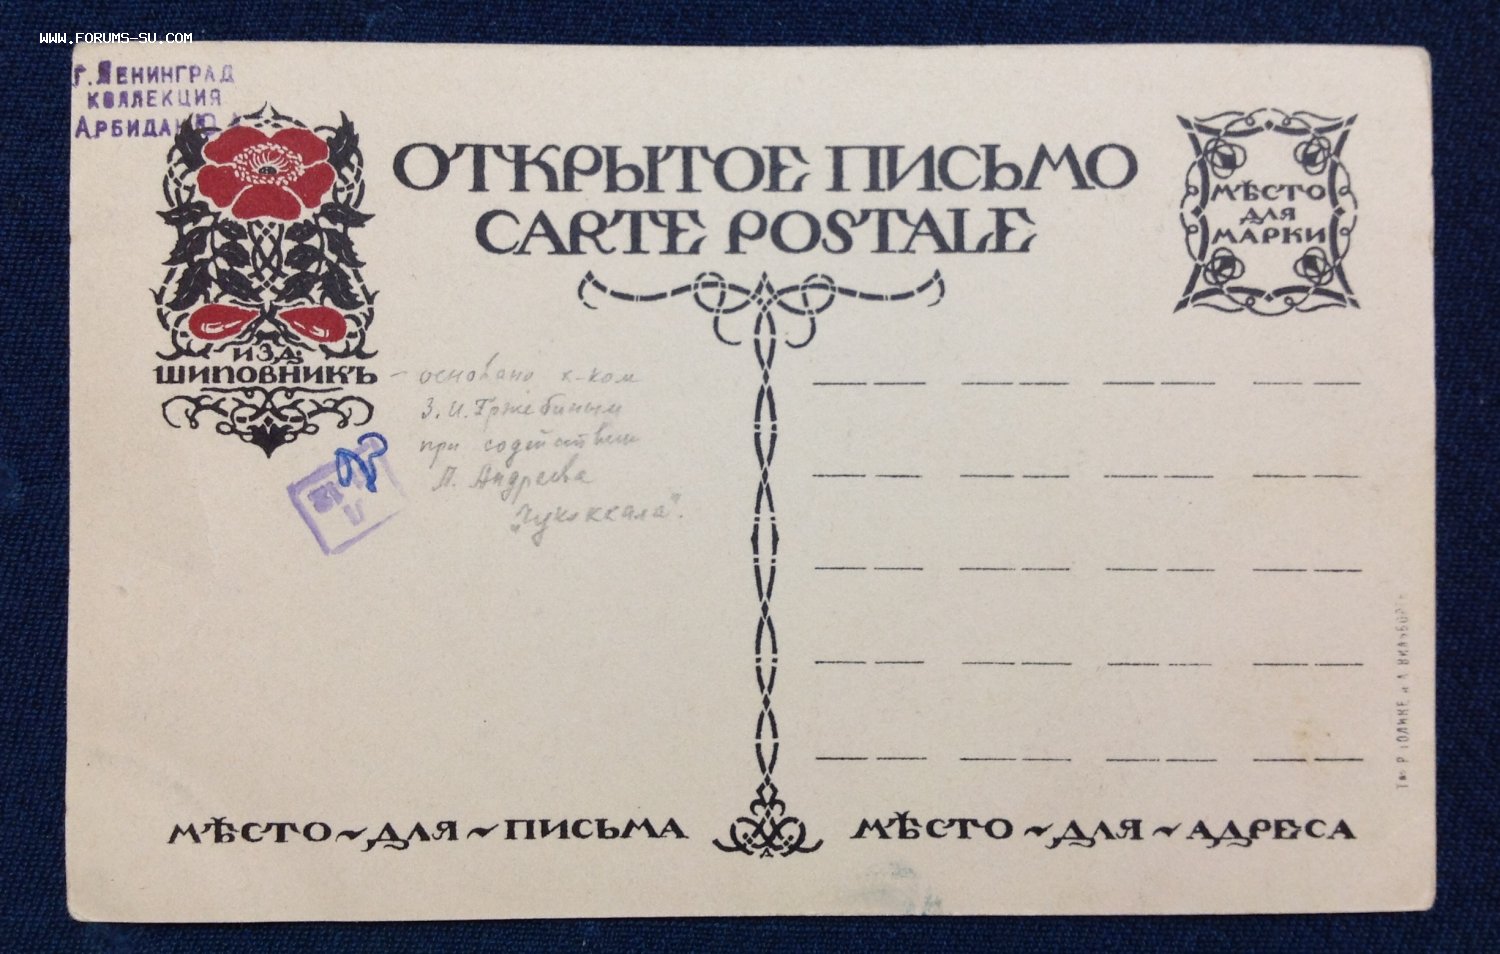 WWW.FORUMS-SU.COM
г. Ленинград
коллекция
Арбидан
ОТКРЫТОЕ ПИСЬМО
CARTE POSTALE
МѢСТО
ДЛЯ
МАРКИ
ИЗД:
ШИПОВНИКЪ
– основано
З. И. Гржебиным
при содействии
Л. Андреева
„Чукоккала".
МѢСТО ~ ДЛЯ ~ ПИСЬМА
МѢСТО ~ ДЛЯ ~ АДРЕСА